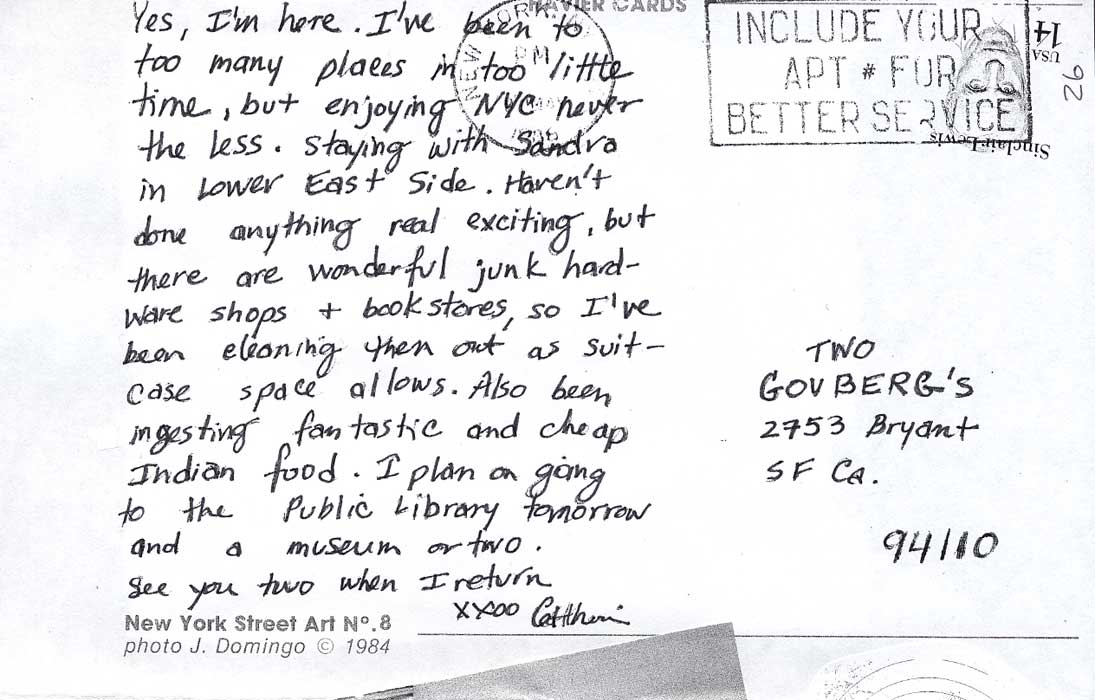 Yes, I'm here. I've been to
too many places in too little
time, but enjoying NYC never
the less. Staying with Sandra
in Lower East Side. Haven't
done anything real exciting, but
there are wonderful junk hard-
ware shops + bookstores, so I've
been cleaning them out as suit-
case space allows. Also been
ingesting fantastic and cheap
Indian food. I plan on going
to the Public Library tomorrow
and a museum or two.
See you two when I return
XXOO
New York Street Art Nº. 8
photo J. Domingo © 1984
CARDS
NEW
PM
INCLUDE YOUR
APT # FOR
BETTER SERVICE
USA
14
Sinclair Lewis
92
TWO
GOVBERG'S
2753 Bryant
SF Ca.
94110